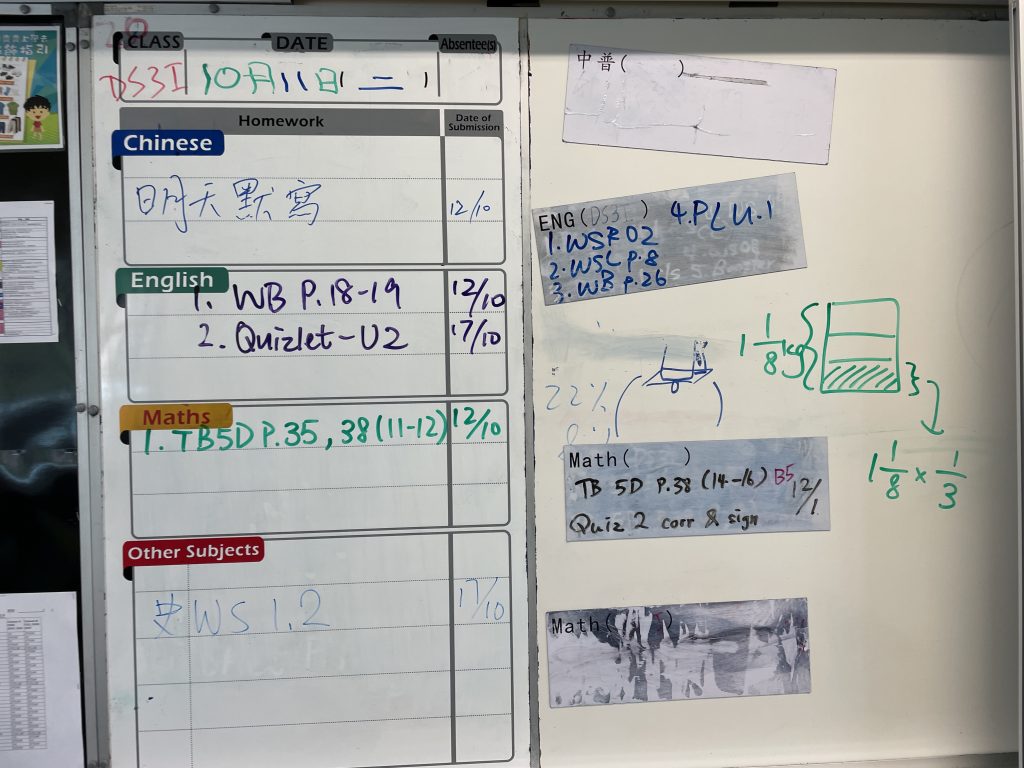 CLASS DATE Absentee(s)
DS3I 10月11日(二)
Homework Date of Submission
Chinese
明天默寫 12/10
English
1. WB P.18-19 12/10
2. Quizlet-U2 17/10
Maths
1. TB5D P.35, 38 (11-12) 12/10
Other Subjects
史 WS 1.2 17/10
中普( )
ENG(DS3I) 4.PLU.1
1. WSR 02
2. WSC P.8
3. WB p.26
1 1/8 kg
22%
1 1/8 × 1/3
Math( )
TB 5D P.38 (14-16) B5 12/1
Quiz 2 corr & sign
Math( )